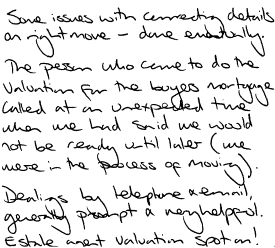 Some issues with correcting details
on rightmove - done eventually.
The person who came to do the
valuation for the buyers mortgage
called at an unexpected time
when we had said we would
not be ready until later (we
were in the process of moving).
Dealings by telephone & email,
generally prompt & very helpful.
Estate agent valuation spot on!